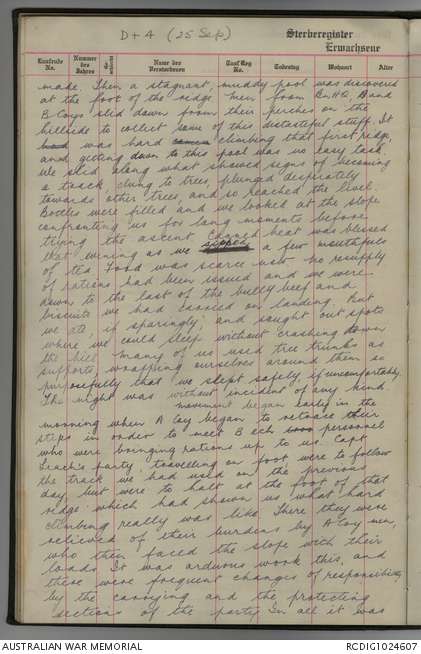 D + 4 (25 Sep)
Sterberegister
Erwachsene
Laufende No. Nummer des Jahres Name des Verstorbenen Taufreg No. Todestag Wohnort Alter
make. Then a stagnant, muddy pool was discovered
at the foot of the ridge. Men from Bn HQ, A and
B Coys slid down from their perches on the
hillside to collect some of this distasteful stuff. It
was hard climbing that first ridge,
and getting down to this pool was no easy task.
We slid along what showed signs of becoming
a track, clung to trees, plunged desperately
towards other trees, and so reached the level.
Bottles were filled and we looked at the slope
confronting us for long moments before
trying the ascent. Canned heat was blessed
that evening as we sipped a few mouthfuls
of tea. Food was scarce with no resupply
of rations had been issued and we were
down to the last of the bully beef and
biscuits we had carried on landing. But
we ate, if sparingly, and sought out spots
where we could sleep without crashing down
the hill. Many of us used tree trunks as
supports, wrapping ourselves around them so
purposefully that we slept safely if uncomfortably.
The night was without incident of any kind.
movement began early in the
morning when A Coy began to retrace their
steps in order to meet B ech personnel
who were bringing rations up to us. Capt
Leach's party, travelling on foot were to follow
the track we had used on the previous
day, but were to halt at the foot of that
ridge which had shown us what hard
climbing really was like. There they were
relieved of their burdens by A Coy men,
who then faced the slope with their
loads. It was arduous work this, and
there were frequent changes of responsibility
by the carrying and the protecting
sections of the party. In all it was
AUSTRALIAN WAR MEMORIAL
RCDIG1024607